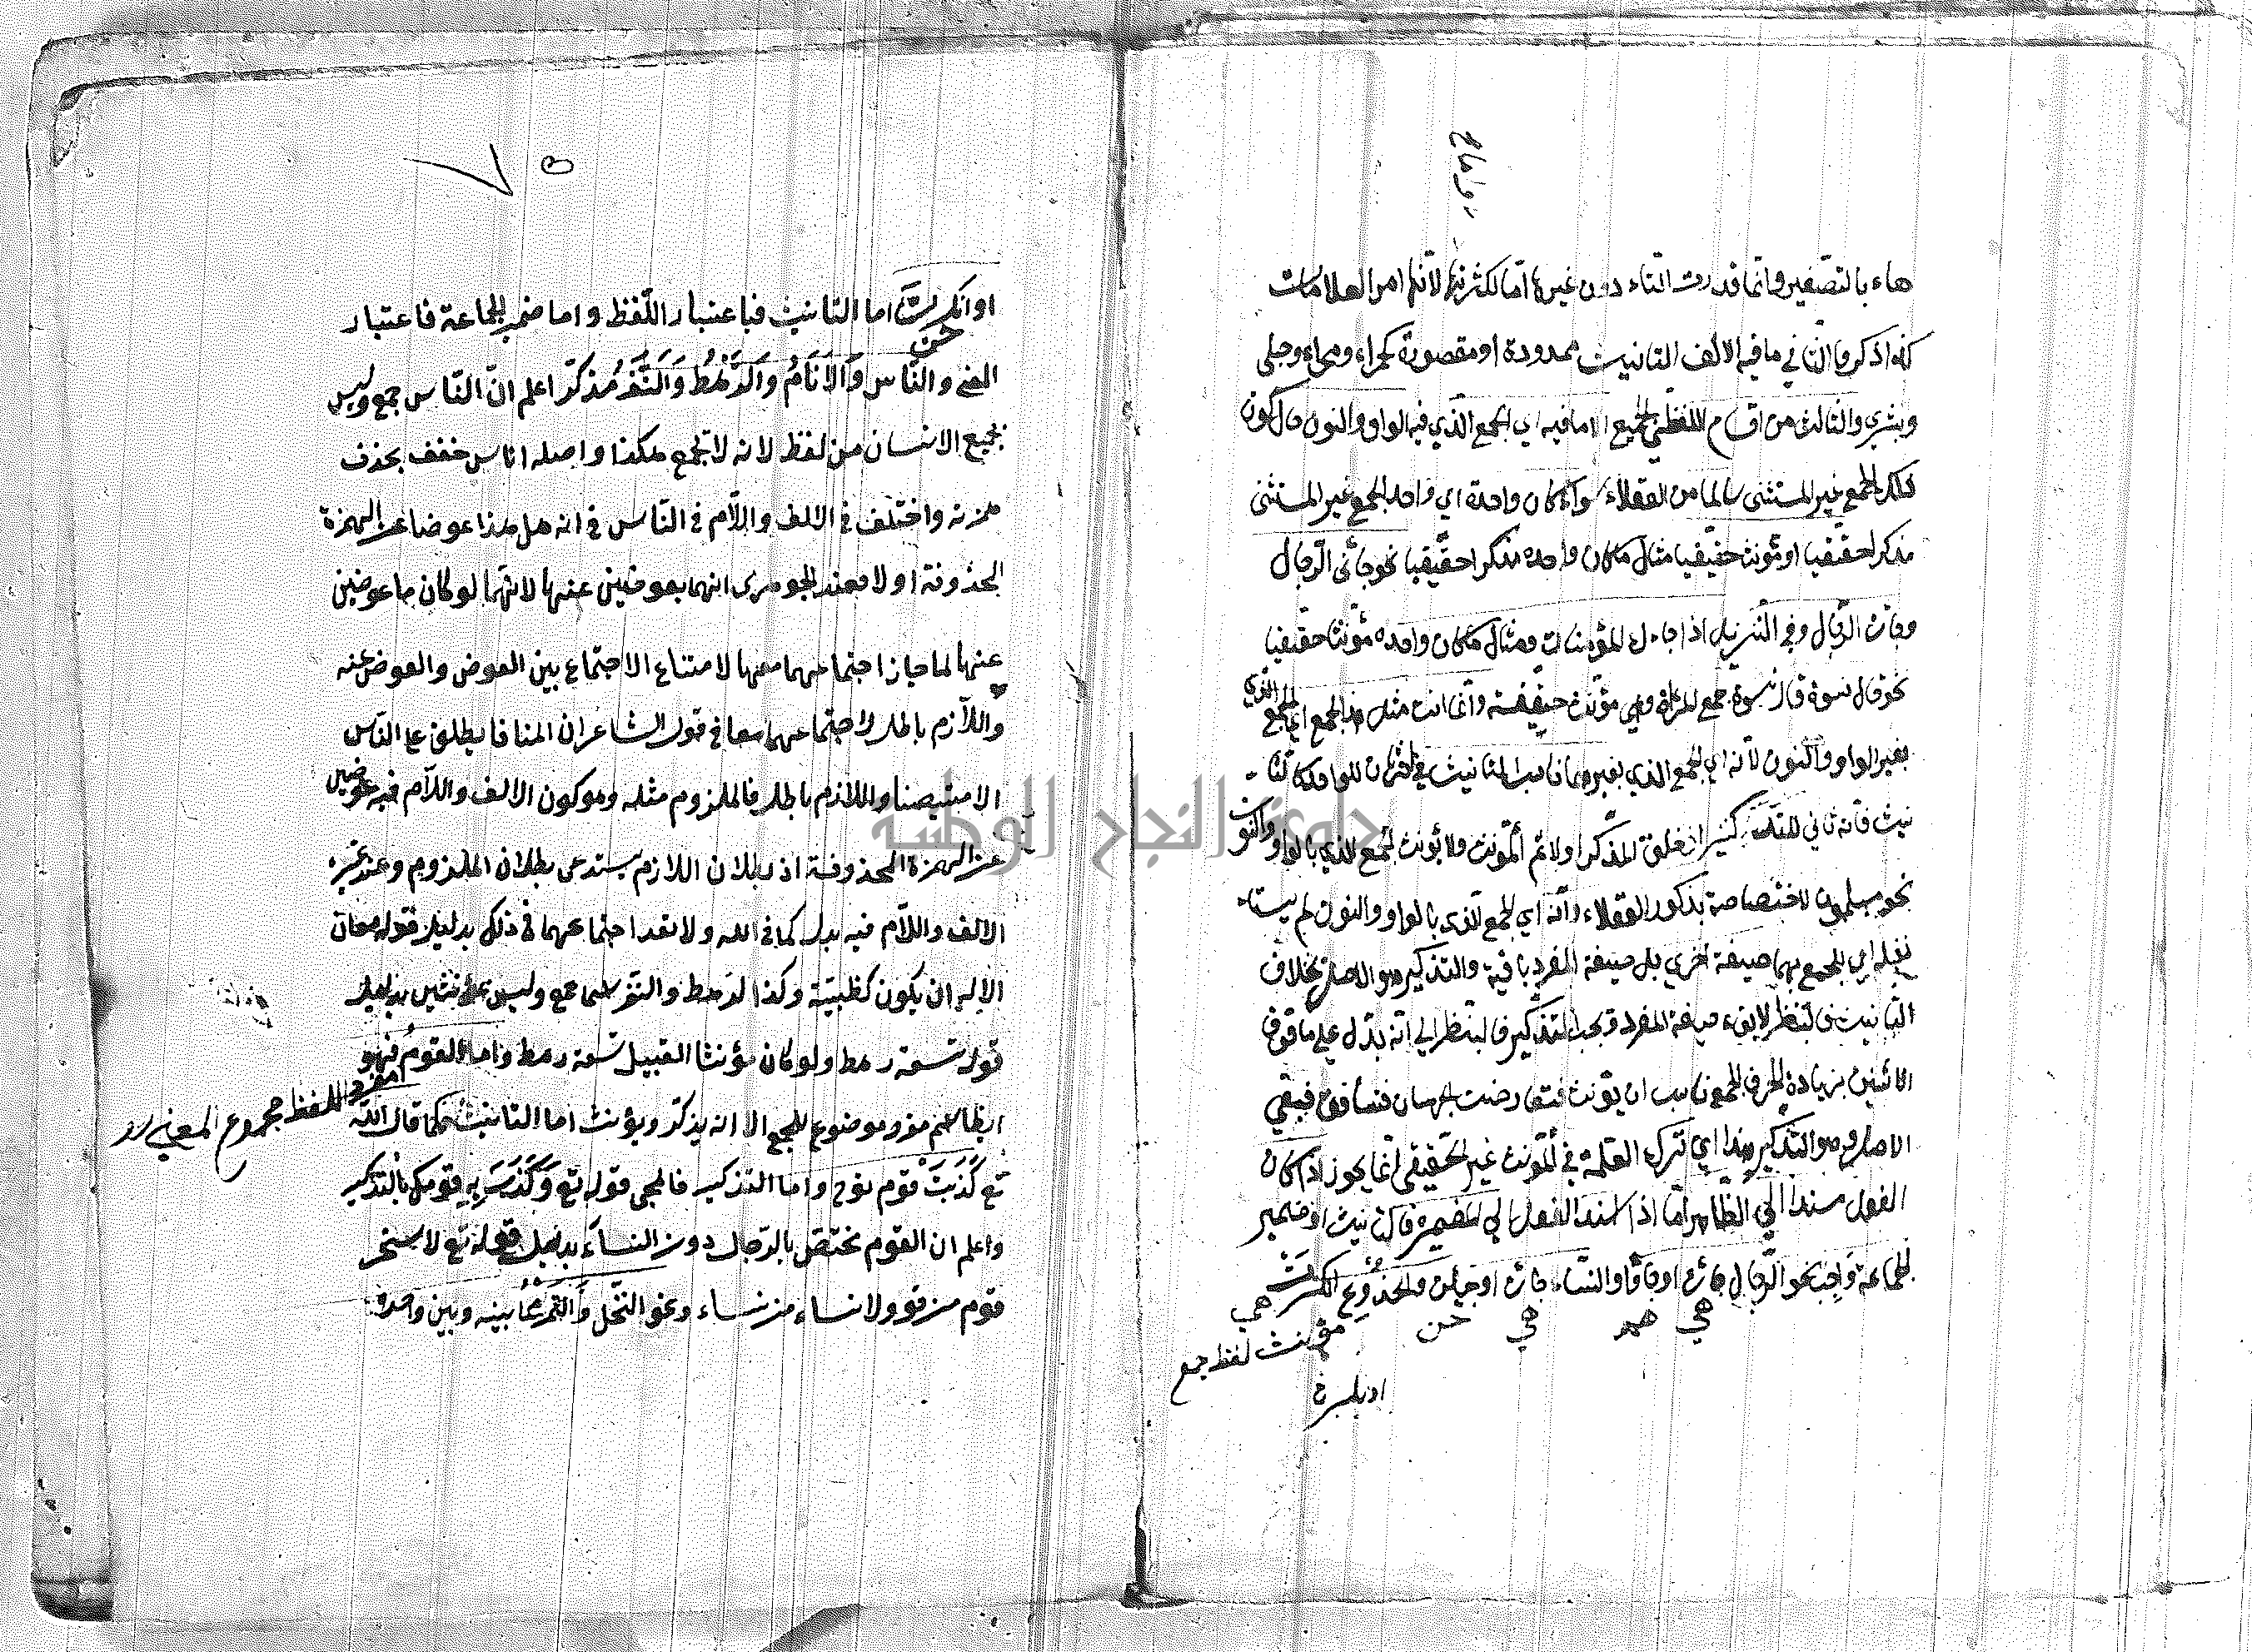 هاء بالتصغير وانما قدرت التاء دون غيرها اما لكثرتها لانها ام العلامات
كذا ذكر والثاني ما فيه الالف التانيث ممدودة او مقصورة كحمراء وصحراء وحبلى
وبشرى والثالث من اقسام اللفظي الجمع الا ما فيه اي الجمع الذي فيه الواو والنون حال كون
ذلك الجمع غير المستثنى سالما من العقلاء سواء كان واحده اي واحد الجمع غير المستثنى
مذكرا حقيقيا او مؤنث حقيقيا مثال ما كان واحده مذكرا حقيقيا نحو جائني الرجال
وجائت الرجال وفي التنزيل اذا جاءك المؤمنات ومثال ما كان واحده مؤنثا حقيقيا
نحو قال نسوة قالت نسوة جمع المرأة وهي مؤنث حقيقية وانما انث مثل هذا الجمع اي الجمع الذي
بغير الواو والنون لانه اي الجمع الذي بغيرهما ناسب التانيث في
نيث فانه ثاني للتذكير اذ خلق المذكر اولا ثم المؤنث ولا يؤنث الجمع الذي بالواو والنون
نحو مسلمون لاختصاصه بذكور العقلاء وانه اي الجمع الذي بالواو والنون لم يستا
نف له اي للجمع بهما صيغة اخرى بل صيغة المفرد باقية والتذكير هو الاصل بخلاف
التانيث فبالنظر لابقاء صيغة المفرد يجب التذكير فالنظر الى انه يدل على ما فوق
الاثنين بزيادة الحرف للجمع ناسب ان يؤنث فتعارضت الجهتان فتساقطا فبقي
الاصل وهو التذكير هذا اي ترك العلامة في المؤنث غير الحقيقي انما يجوز اذا كان
الفعل مسندا الى الظاهر اما اذا اسند الفعل الى الضمير فالتانيث او ضمير
الجماعة واجب نحو الرجال جائت او جاؤا والنساء جائت او جئن والجذوع انكسرت
هي هم هي حن هي
مؤنث لفظ جمع
او انكسرن
او انكسرن اما التانيث فباعتبار اللفظ واما ضمير الجماعة فاعتبار
حن
المعنى والناس والانام والرهط والنفر مذكر اعلم ان الناس جمع وليس
بجمع الانسان من لفظ لانه لا تجمع هكذا واصله اناس خفف بحذف
همزته واختلف في الالف واللام في الناس في انه هل هذا عوضا عن الهمزة
المحذوفة او لا فعند الجوهري انهما بعوضين عنها لانهما لو كان ما عوضين
عنها لما جاز اجتماعهما معها لامتناع الاجتماع بين العوض والمعوض عنه
واللازم باطل لاجتماعهما معا في قول الشاعر ان المنايا يطلعن على الناس
الامنينا واللازم باطل فالملزوم مثله وهو كون الالف واللام فيه عوضين
عن الهمزة المحذوفة اذ بطلان اللازم يستدعى بطلان الملزوم وعند غيره
الالف واللام فيه بدل كما في الله ولا نقد اجتماعهما في ذلك بدليل قوله معاذ
الاله ان يكون كظبية وكذا الرهط والنفر كلهما جمع وليس بمؤنثين بدليل
قوله تسعة رهط ولو كان مؤنثا لقيل تسع رهط واما القوم فهو
امفرد اللفظ مجموع المعنى
ايضا اسم مفرد موضوع للجمع الا انه يذكر ويؤنث اما التانيث فكما قال الله
تع كذبت قوم نوح واما التذكير فالمجئ قوله تع وكذب به قومك بالتذكير
واعلم ان القوم يختص بالرجال دون النساء بدليل قوله تع لا يسخر
قوم من قوم ولا نساء من نساء ونحو النخل والتمر مما بينه وبين واحده